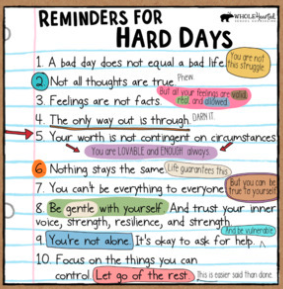 REMINDERS FOR
HARD DAYS
WHOLEhearted
1. A bad day does not equal a bad life.
You are not
this struggle.
2. Not all thoughts are true. Phew.
But all your feelings are valid,
real, and allowed.
3. Feelings are not facts.
4. The only way out is through. DARN IT.
5. Your worth is not contingent on circumstances
You are LOVABLE and ENOUGH always.
6. Nothing stays the same. Life guarantees this.
7. You can't be everything to everyone.
But you can be
true to yourself.
8. Be gentle with yourself. And trust your inner
voice, strength, resilience, and strength.
And be vulnerable.
9. You're not alone. It's okay to ask for help.
10. Focus on the things you can
control. Let go of the rest. This is easier said than done.